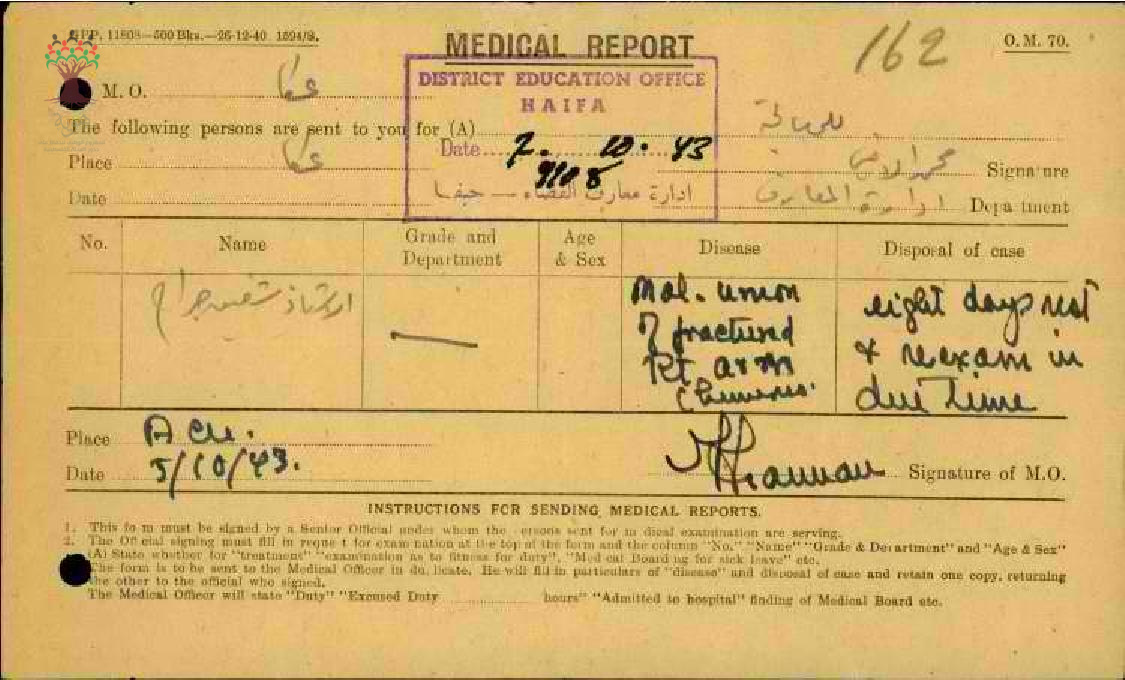 GPP. 11808—500 Bks.—26-12-40. 1594/S.
MEDICAL REPORT
162
O. M. 70.
DISTRICT EDUCATION OFFICE
HAIFA
M. O. عكا
The following persons are sent to you for (A) للمعالجة
Date 7. 10. 43
Place عكا
Signature
9118
ادارة معارف القضاء — حيفا
Date
ادارة المعارف Depa tment
No. Name Grade and Department Age & Sex Disease Disposal of case
الاستاذ — Mal. union eight days rest
of fractured & reexam in
Rt arm due time
(humerus.
Place Acre.
Date 5/10/43.
Signature of M.O.
INSTRUCTIONS FOR SENDING MEDICAL REPORTS.
1. This fo m must be signed by a Senior Official under whom the ersons sent for m dical examination are serving.
2. The Of cial signing must fill in reque t for exam nation at the top of the form and the column "No." "Name" "Grade & Department" and "Age & Sex"
(A) State whether for "treatment" "examination as to fitness for duty", "Med cal Board ng for sick leave" etc.
The form is to be sent to the Medical Officer in du licate. He will fill in particulars of "disease" and disposal of case and retain one copy, returning
the other to the official who signed.
The Medical Officer will state "Duty" "Excused Duty hours" "Admitted to hospital" finding of Medical Board etc.